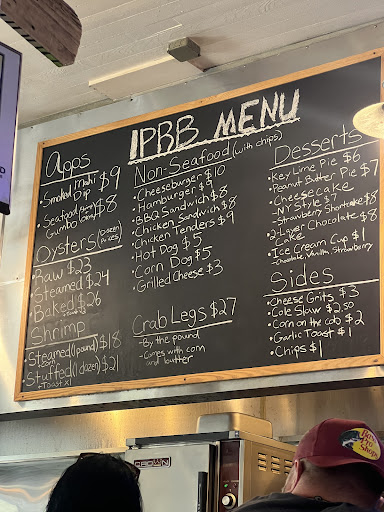 IPBB MENU
Apps
• Smoked Mahi Dip $9
• Seafood Gumbo $8
Oysters (Dozen prices)
• Raw $23
• Steamed $24
• Baked $26
Shrimp
• Steamed (1 pound) $18
• Stuffed (1 dozen) $21
• Toast x1
Non-Seafood (with chips)
• Cheeseburger $10
• Hamburger $9
• BBQ Sandwich $8
• Chicken Sandwich $8
• Chicken Tenders $9
• Hot Dog $5
• Corn Dog $5
• Grilled Cheese $3
Crab Legs $27
- By the pound
- Comes with corn
and butter
Desserts
• Key Lime Pie $6
• Peanut Butter Pie $7
• Cheesecake
- NY Style $7
- Strawberry Shortcake $8
• 2-Layer Chocolate $8
Cake
• Ice Cream Cup $1
- Chocolate, Vanilla, Strawberry
Sides
• Cheese Grits $3
• Cole Slaw $2.50
• Corn on the cob $2
• Garlic Toast $1
• Chips $1
CROWN
Bass Pro Shops